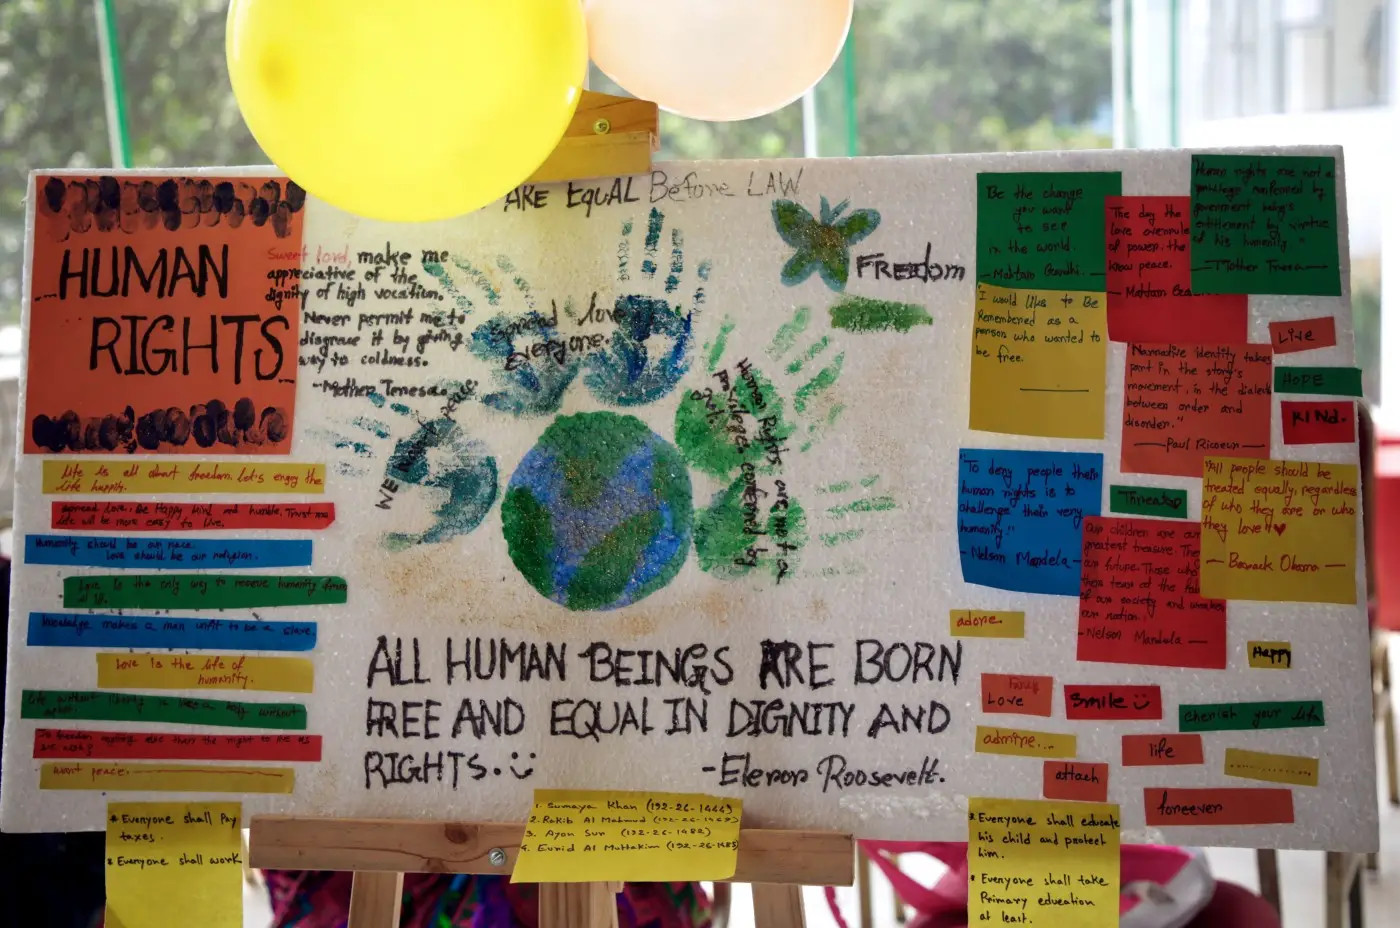 ARE EQUAL Before LAW
HUMAN
RIGHTS
Sweet lord, make me
appreciative of the
dignity of high vocation.
Never permit me to
disgrace it by giving
way to coldness.
-Mother Teresa.
Spread love
everyone.
Human Rights are not a
privilege conferred by
FREEdom
ALL HUMAN BEINGS ARE BORN
FREE AND EQUAL IN DIGNITY AND
RIGHTS.
-Elenor Roosevelt.
Life is all about freedom. Let's enjoy the
life happily.
spread love. Be Happy kind and humble. Trust me
life will be more easy to live.
Humanity should be our race.
Love should be our religion.
Love is the only way to rescue humanity from
knowledge makes a man unfit to be a slave.
Love is the life of
humanity.
Life without liberty is like a body without
want peace.
* Everyone shall Pay
taxes.
* Everyone shall work
1. Sumaya Khan (192-26-1444)
2. Rakib Al Mahmud
3. Ayon Sur (192-26-1482)
4.
Be the change
you want
to see
in the world.
- Mahtam Gandhi.
The day the
love overrule
of power. the
know peace.
- Mahtam
Human rights are not a
privilege conferred by
government being's
entitlement by virtue
of his humanity."
- Mother Tresa
"I would like to Be
Remembered as a
person who wanted to
be free.
Narrative identity takes
part in the story's
movement, in the dialectic
between order and
disorder."
- Paul Ricoeur
LIVE
HOPE
KIND.
"To deny people their
human rights is to
challenge their very
humanity."
- Nelson Mandela -
"All people should be
treated equally, regardless
of who they are or who
they love"
- Barack Obama -
our children are our
greatest treasure. They
our future. Those who
of our society and weaken
our nation.
- Nelson Mandela
adore.
Happy
LOVE
Smile
cherish your life
admire...
life
attach
forever
* Everyone shall educate
his child and protect
him.
* Everyone shall take
Primary education
at least.